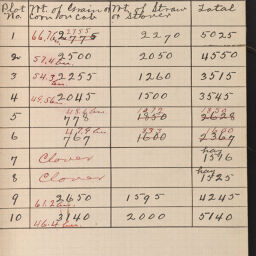 Plot Wt. of Grain or Wt. of Straw Total
No. Corn on Cob or Stover
1 66.76 bu. 2755 2775 2270 5025
2 57.4 bu. 2500 2050 4550
3 54.3 bu. 2255 1260 3515
4 49.56 2045 1500 3545
5 48.6 bu. 778 1850 2628
6 47.9 bu. 767 1600 2367
7 Clover hay 1576
8 Clover hay 1525
9 61.2 bu. 2650 1595 4245
10 46.4 bu. 3140 2000 5140